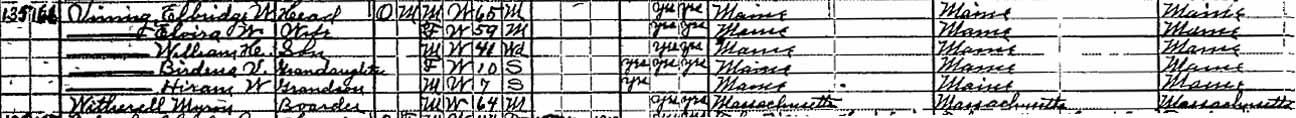 Vining Elbridge W Head O M M W 65 M yes yes Maine Maine Maine
— Elvira W Wife F W 59 M yes yes Maine Maine Maine
— William H. Son M W 41 Wd yes yes Maine Maine Maine
— Birdena V. Grandaughter F W 10 S yes yes yes Maine Maine Maine
— Hiram W Grandson M W 7 S yes Maine Maine Maine
Witherell Myron Boarder M W 64 M yes yes Massachusetts Massachusetts Massachusetts